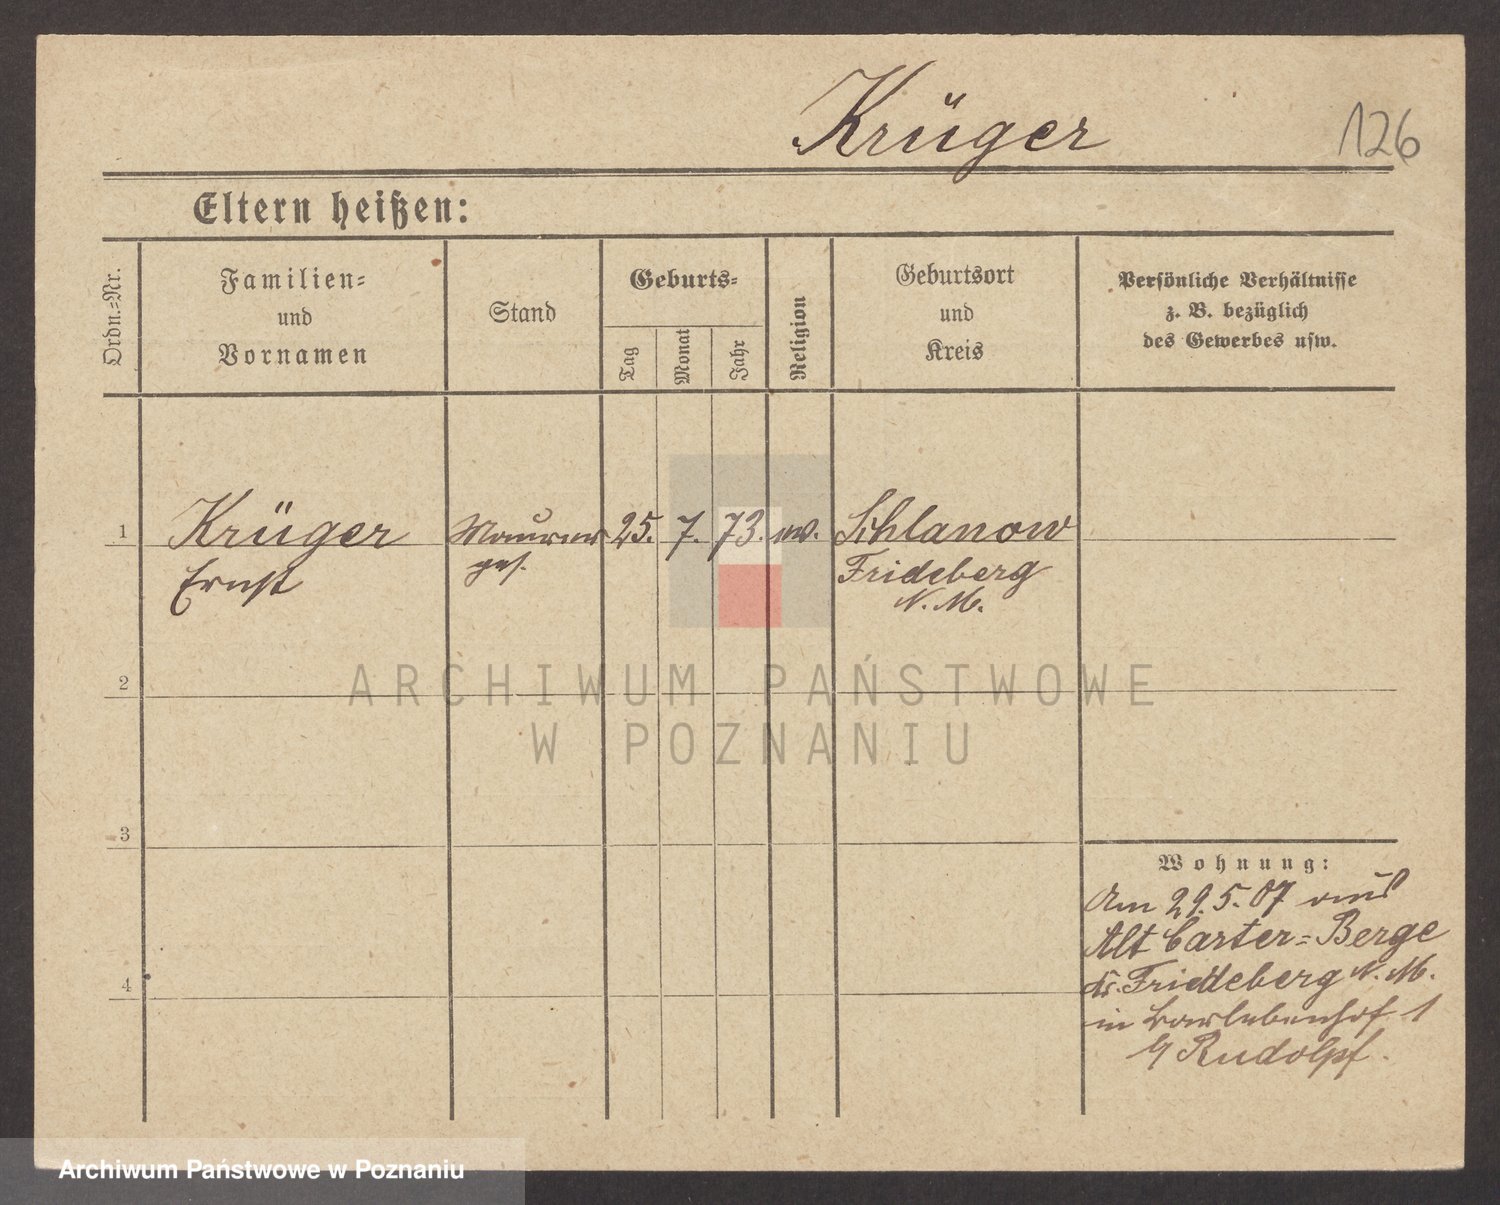 Krüger
126
Eltern heißen:
Ordn.=Nr.
Familien=
und
Vornamen
Stand
Geburts=
Tag
Monat
Jahr
Religion
Geburtsort
und
Kreis
Persönliche Verhältnisse
z. B. bezüglich
des Gewerbes usw.
1
Krüger
Ernst
Maurer
ges.
25. 7. 73. ev.
Schlanow
Frideberg
N. M.
2
ARCHIWUM PAŃSTWOWE
W POZNANIU
3
Wohnung:
Am 29.5.07 aus
Alt Carter=Berge
Friedeberg N. M.
in 1
b/ Rudolph.
4
Archiwum Państwowe w Poznaniu